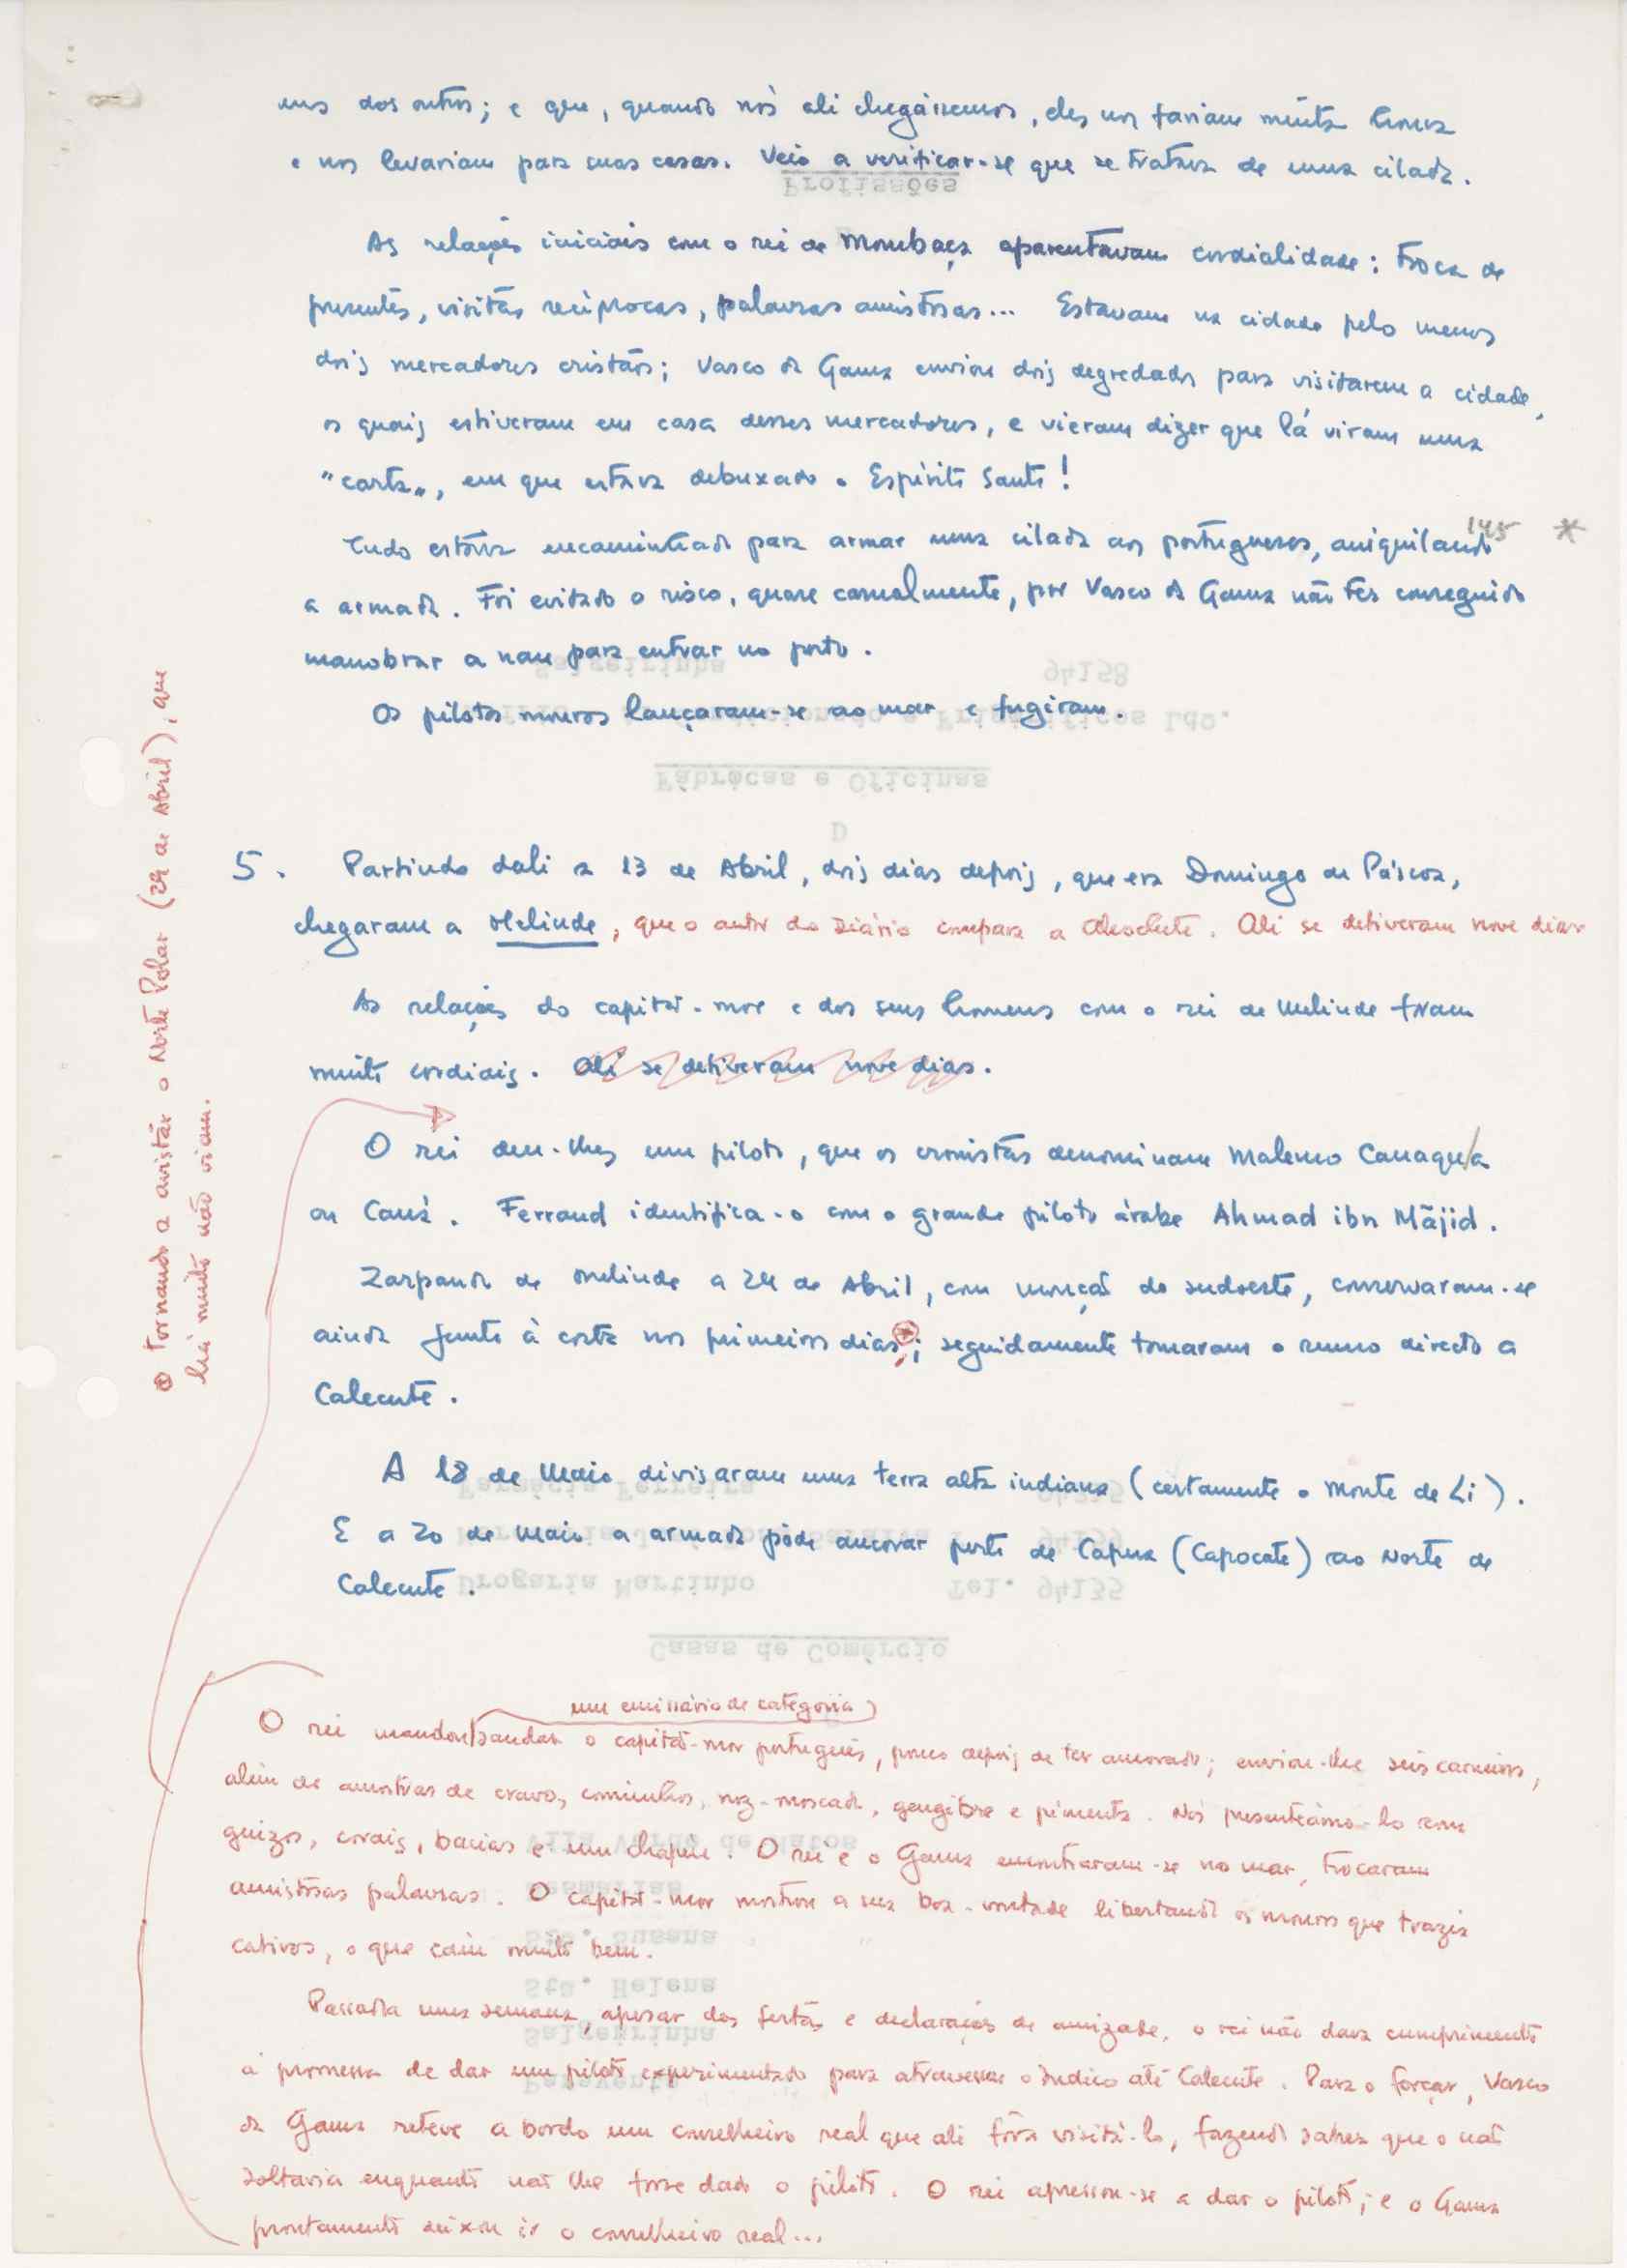 uns dos outros; e que, quando nós ali chegássemos, eles nos fariam muita honra
e nos levariam para suas casas. Veio a verificar-se que se tratava de uma cilada.
As relações iniciais com o rei de Mombaça aparentavam cordialidade: troca de
presentes, visitas recíprocas, palavras amistosas... Estavam na cidade pelo menos
dois mercadores cristãos; Vasco da Gama enviou dois degredados para visitarem a cidade,
os quais estiveram em casa desses mercadores, e vieram dizer que lá viram uma
"carta", em que estava debuxado o Espírito Santo!
Tudo estava encaminhado para armar uma cilada aos portugueses, aniquilando 145 *
a armada. Foi evitado o risco, quase casualmente, por Vasco da Gama não ter conseguido
manobrar a nau para entrar no porto.
Os pilotos mouros lançaram-se ao mar e fugiram.
5. Partindo dali a 13 de Abril, dois dias depois, que era Domingo de Páscoa,
chegaram a Melinde, que o autor do Diário compara a Alcochete. Ali se detiveram nove dias
As relações do capitão-mor e dos seus homens com o rei de Melinde foram
muito cordiais. Ali se detiveram nove dias.
O rei deu-lhes um piloto, que os cronistas denominam Malemo Canaqua
ou Caná. Ferrand identifica-o com o grande piloto árabe Ahmad ibn Mājid.
Zarpando de Melinde a 24 de Abril, com monção do sudoeste, conservaram-se
ainda junto à costa nos primeiros dias; seguidamente tomaram o rumo directo a
Calecute.
A 18 de Maio divisaram uma terra alta indiana (certamente o Monte de Li).
E a 20 de Maio a armada pôde ancorar perto de Capua (Capocate) ao Norte de
Calecute.
Tornando a avistar o Norte Polar (29 de Abril), que
há muito não viam.
um emissário de categoria
O rei mandou saudar o capitão-mor português, pouco depois de ter ancorado; enviou-lhe seis carneiros,
além de amostras de cravo, cominhos, noz-moscada, gengibre e pimenta. Nós presenteámo-lo com
guizos, corais, bacias e um chapéu. O rei e o Gama encontraram-se no mar, trocaram
amistosas palavras. O capitão-mor mostrou a sua boa-vontade libertando os mouros que trazia
cativos, o que caiu muito bem.
Passada uma semana, apesar das festas e declarações de amizade, o rei não dava cumprimento
à promessa de dar um piloto experimentado para atravessar o Índico até Calecute. Para o forçar, Vasco
da Gama reteve a bordo um conselheiro real que ali fôra visitá-lo, fazendo saber que o não
soltaria enquanto não lhe fosse dado o piloto. O rei apressou-se a dar o piloto; e o Gama
prontamente deixou ir o conselheiro real...